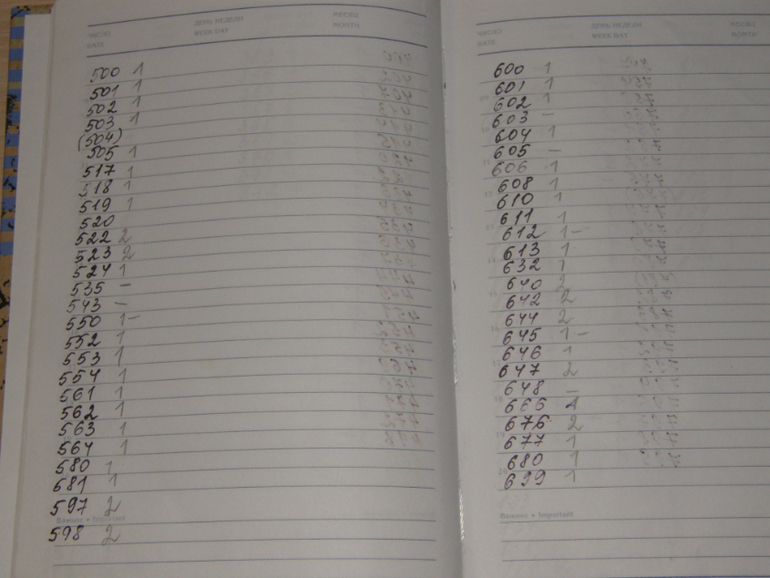 ЧИСЛО
DATE
ДЕНЬ НЕДЕЛИ
WEEK DAY
МЕСЯЦ
MONTH
500 1
501 1
502 1
503 1
(504)
505 1
517 1
518 1
519 1
520
522 2
523 2
524 1
535 –
543 –
550 1–
552 1
553 1
554 1
561 1
562 1
563 1
564 1
580 1
681 1
597 2
Важное • Important
598 2
ЧИСЛО
DATE
ДЕНЬ НЕДЕЛИ
WEEK DAY
МЕСЯЦ
MONTH
600 1
601 1
602 1
603 –
604 1
605 –
606 1
608 1
610 1
611 1
612 1–
613 1
632 1
640 2
642 2
644 2
645 1–
646 1
647 2
648 –
665 1
676 2
677 1
680 1
699 1
Важное • Important